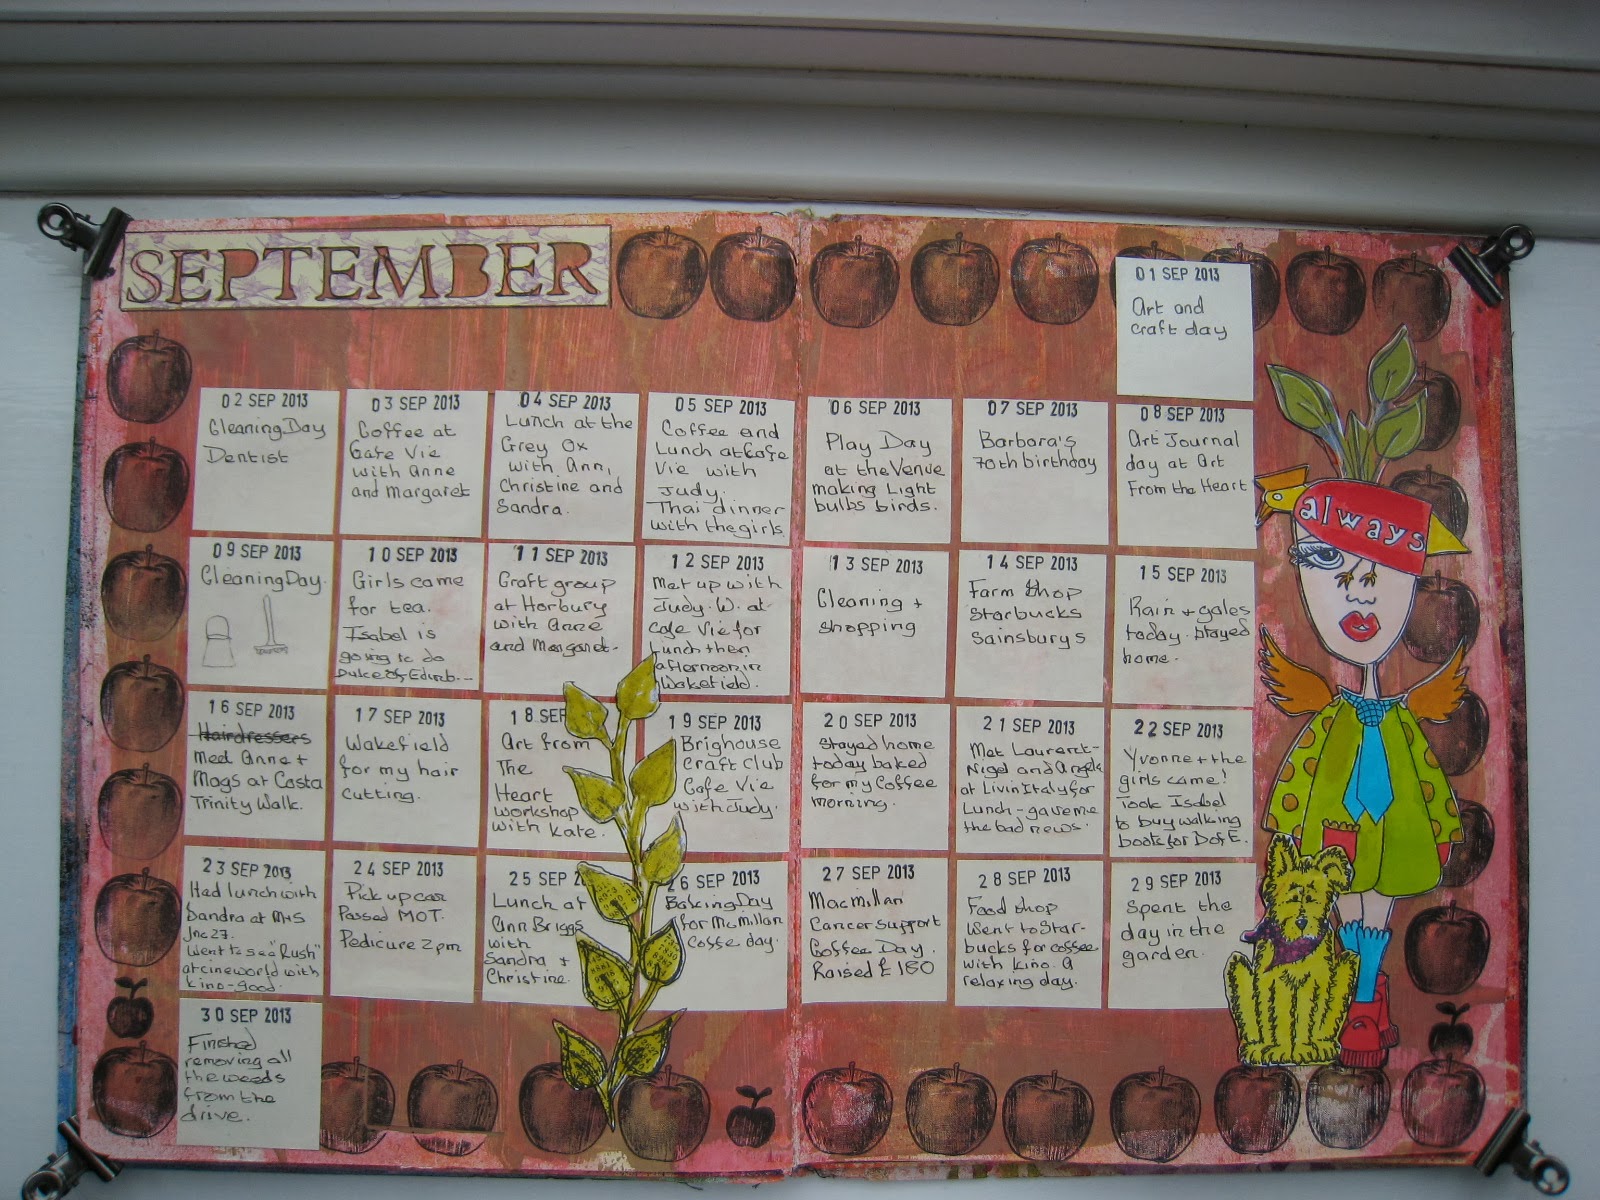 SEPTEMBER
01 SEP 2013
Art and
craft day
02 SEP 2013
Cleaning Day
Dentist
03 SEP 2013
Coffee at
Cafe Vie
with Anne
and Margaret
04 SEP 2013
Lunch at the
Grey Ox
with Ann,
Christine and
Sandra.
05 SEP 2013
Coffee and
Lunch at Cafe
Vie with
Judy.
Thai dinner
with the girls
06 SEP 2013
Play Day
at the Venue
making Light
bulbs birds.
07 SEP 2013
Barbara's
70th birthday
08 SEP 2013
Art Journal
day at Art
From the Heart
always
09 SEP 2013
Cleaning Day.
10 SEP 2013
Girls came
for tea.
Isabel is
going to do
Duke of Edinb.
11 SEP 2013
Craft group
at Horbury
with Anne
and Margaret.
12 SEP 2013
Met up with
Judy. W. at
Cafe Vie for
lunch then
afternoon in
Wakefield.
13 SEP 2013
Cleaning +
shopping
14 SEP 2013
Farm shop
Starbucks
Sainsburys
15 SEP 2013
Rain + gales
today. stayed
home.
16 SEP 2013
Hairdressers
Meet Anne +
Mags at Costa
Trinity Walk.
17 SEP 2013
Wakefield
for my hair
cutting.
18 SEP
Art from
The
Heart
workshop
with Kate.
19 SEP 2013
Brighouse
Craft Club
Cafe Vie
with Judy.
20 SEP 2013
Stayed home
today baked
for my Coffee
morning.
21 SEP 2013
Met Laurence
Nigel and Angela
at Livin Italy for
Lunch - gave me
the bad news.
22 SEP 2013
Yvonne + the
girls came!
Took Isabel
to buy walking
boots for DofE.
23 SEP 2013
Had lunch with
Sandra at M+S
Jnc 27.
Went to see "Rush"
at cineworld with
kino-good.
24 SEP 2013
Pick up car
Passed MOT.
Pedicure 2pm
25 SEP 2
Lunch at
Ann Briggs
with
Sandra +
Christine.
26 SEP 2013
Baking Day
for Mcmillan
Coffee day.
27 SEP 2013
Macmillan
Cancer support
Coffee Day.
Raised £180
28 SEP 2013
Food shop
Went to Star-
bucks for coffee
with kino. A
relaxing day.
29 SEP 2013
Spent the
day in the
garden.
30 SEP 2013
Finished
removing all
the weeds
from the
drive.